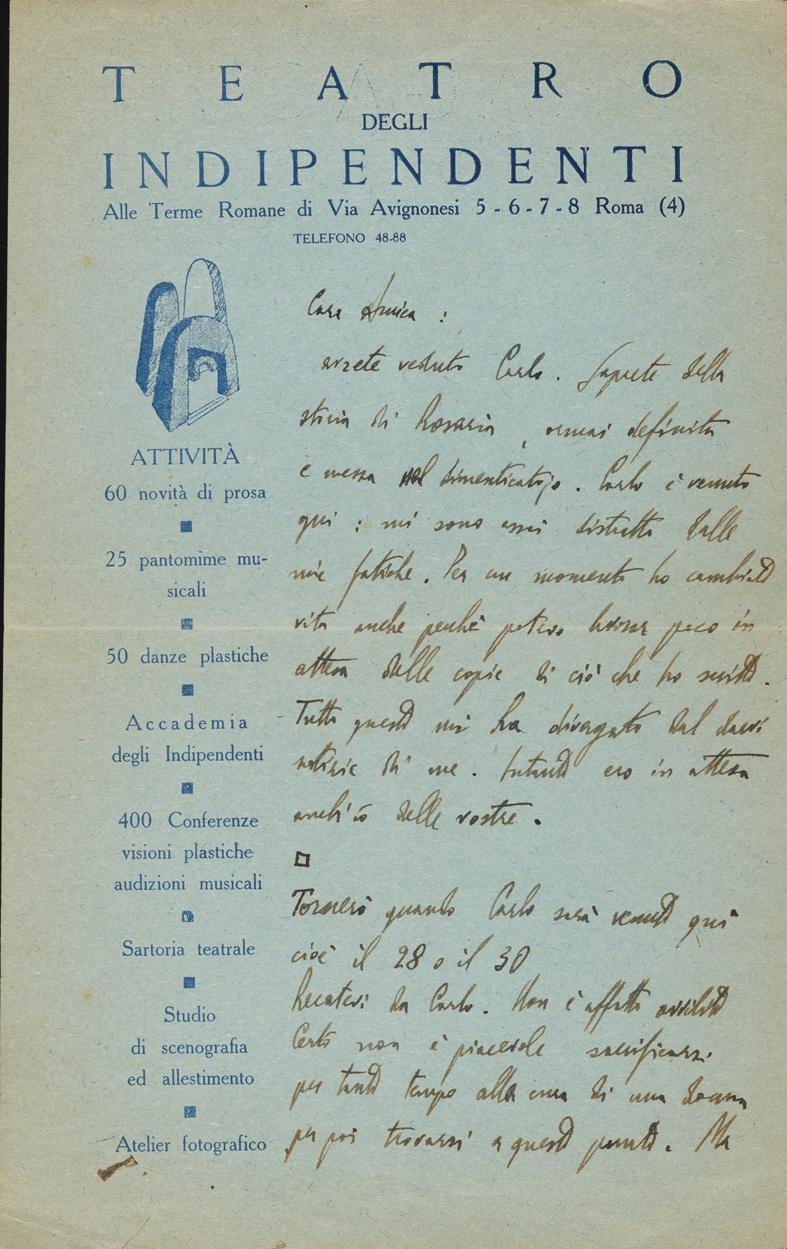 TEATRO
DEGLI
INDIPENDENTI
Alle Terme Romane di Via Avignonesi 5-6-7-8 Roma (4)
TELEFONO 48-88
ATTIVITÀ
60 novità di prosa
25 pantomime mu-
sicali
50 danze plastiche
Accademia
degli Indipendenti
400 Conferenze
visioni plastiche
audizioni musicali
Sartoria teatrale
Studio
di scenografia
ed allestimento
Atelier fotografico
Cara Amica :
avrete veduto Carlo. Saprete della
storia di Rosaria, ormai definita
e messa nel dimenticatojo. Carlo è venuto
qui : mi sono assai distratto dalle
mie fatiche. Per un momento ho cambiato
vita anche perchè potevo lavorar poco in
attesa delle copie di ciò che ho scritto.
Tutto questo mi ha divagato dal darvi
notizie di me. Intanto ero in attesa
anch'io delle vostre.
Tornerò quando Carlo sarà venuto qui
cioè il 28 o il 30
Recatevi da Carlo. Non è affatto avvilito
Certo non è piacevole sacrificarsi
per tanto tempo alla cura di una donna
per poi trovarsi a questo punto. Ma